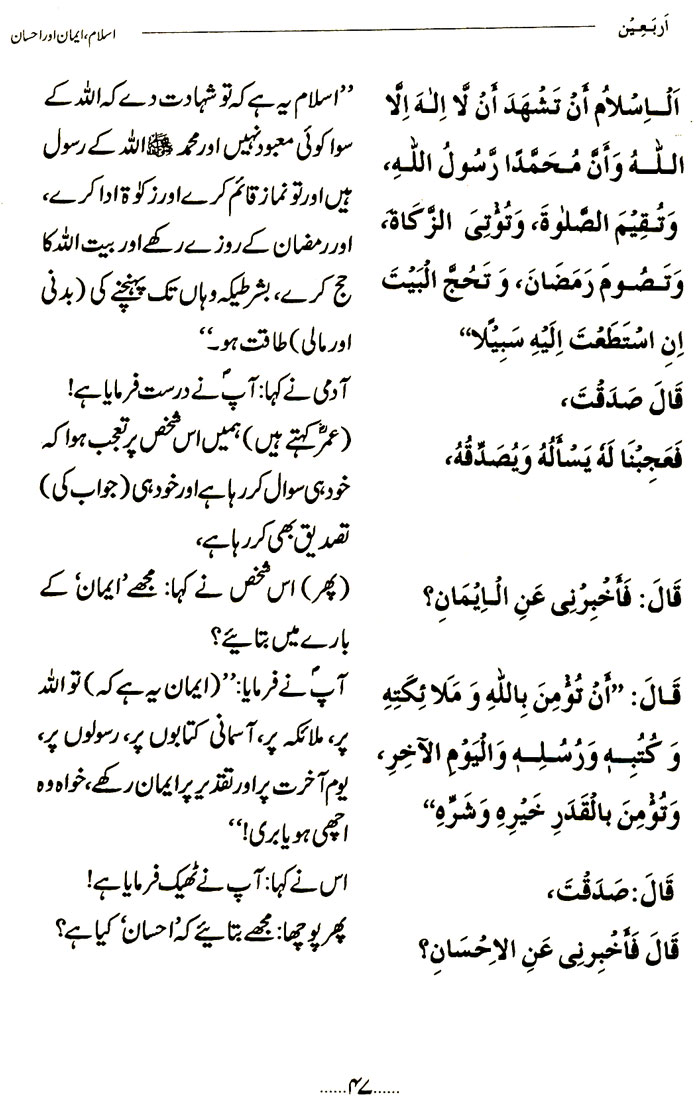 اَربَعِیْن
اسلام، ایمان اور احسان
اَلْـاِسْلَامُ أَنْ تَشْهَدَ أَنْ لَّا اِلٰـهَ اِلَّا
اللّٰـهُ وَأَنَّ مُـحَمَّدًا رَّسُولُ اللّٰـهِ،
وَتُـقِيْمَ الصَّلٰوةَ، وَتُؤْتِىَ الزَّكَاةَ،
وَتَصُـومَ رَمَضَانَ، وَ تَحُجَّ الْبَيْتَ
اِنِ اسْتَطَعْتَ اِلَيْهِ سَبِيْلًا“
قَالَ صَدَقْتَ،
فَعَجِبْنَا لَهٗ يَسْأَلُهٗ وَيُصَدِّقُهٗ،
قَالَ: فَأَخْبِرْنِى عَنِ الْـاِيْمَانِ؟
قَـالَ: ”أَنْ تُؤْمِنَ بِاللّٰهِ وَ مَلَائِكَتِهٖ
وَ كُتُبِـهٖ وَرُسُلِـهٖ وَالْيَوْمِ الآخِرِ،
وَتُؤْمِنَ بِالْقَدَرِ خَيْرِهٖ وَشَرِّهٖ“
قَالَ: صَدَقْتَ،
قَالَ فَأَخْبِرْنِى عَنِ الاِحْسَانِ؟
”اسلام یہ ہے کہ تو شہادت دے کہ اللہ کے
سوا کوئی معبود نہیں اور محمد ﷺ اللہ کے رسول
ہیں اور تو نماز قائم کرے اور زکوٰۃ ادا کرے،
اور رمضان کے روزے رکھے اور بیت اللہ کا
حج کرے، بشرطیکہ وہاں تک پہنچنے کی (بدنی
اور مالی) طاقت ہو۔“
آدمی نے کہا: آپؐ نے درست فرمایا ہے!
(عمرؓ کہتے ہیں) ہمیں اس شخص پر تعجب ہوا کہ
خود ہی سوال کر رہا ہے اور خود ہی (جواب کی)
تصدیق بھی کر رہا ہے،
(پھر) اس شخص نے کہا: مجھے ’ایمان‘ کے
بارے میں بتایئے؟
آپؐ نے فرمایا: ”(ایمان یہ ہے کہ) تو اللہ
پر، ملائکہ پر، آسمانی کتابوں پر، رسولوں پر،
یوم آخرت پر اور تقدیر پر ایمان رکھے، خواہ وہ
اچھی ہو یا بری!“
اس نے کہا: آپ نے ٹھیک فرمایا ہے!
پھر پوچھا: مجھے بتایئے کہ ’احسان‘ کیا ہے؟
......۴۷......